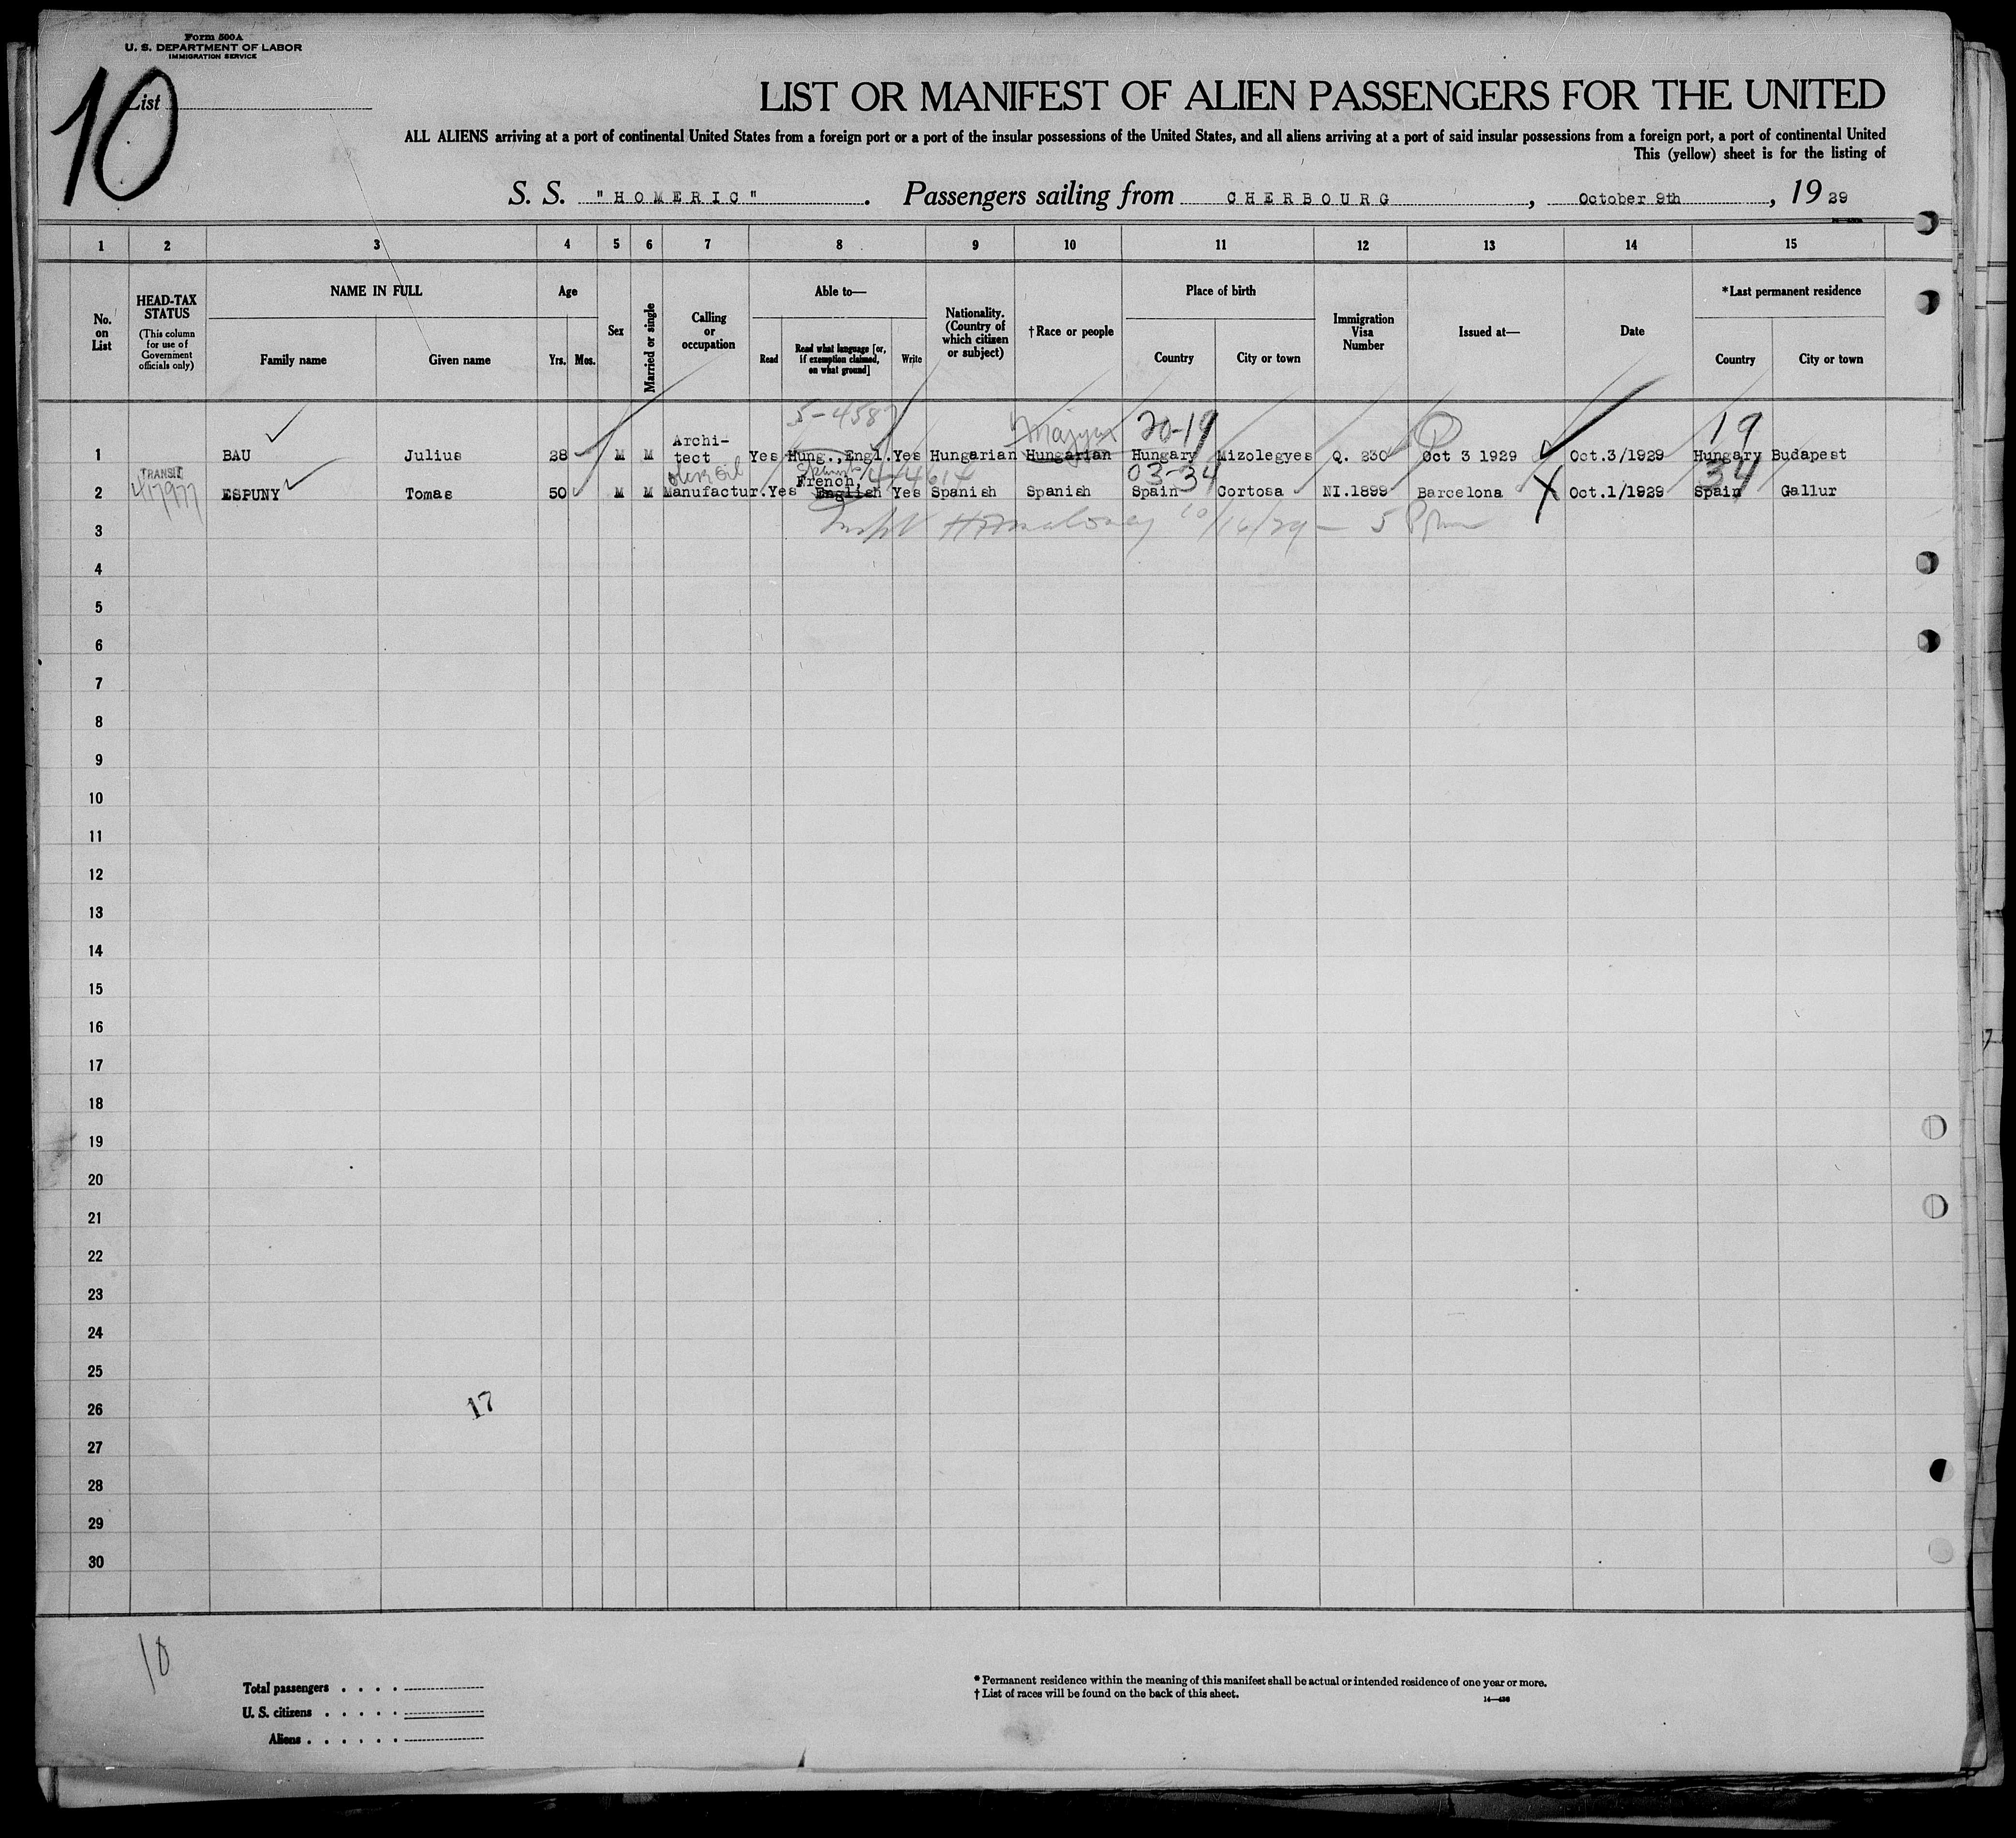 Form 500A
U. S. DEPARTMENT OF LABOR
IMMIGRATION SERVICE
10
List
LIST OR MANIFEST OF ALIEN PASSENGERS FOR THE UNITED
ALL ALIENS arriving at a port of continental United States from a foreign port or a port of the insular possessions of the United States, and all aliens arriving at a port of said insular possessions from a foreign port, a port of continental United
This (yellow) sheet is for the listing of
S. S. "HOMERIC". Passengers sailing from CHERBOURG, October 9th, 1929
1 2 3 4 5 6 7 8 9 10 11 12 13 14 15
No. on List
HEAD-TAX STATUS
(This column for use of Government officials only)
NAME IN FULL
Family name
Given name
Age
Yrs. Mos.
Sex
Married or single
Calling or occupation
Able to—
Read
Read what language [or, if exemption claimed, on what ground]
Write
Nationality. (Country of which citizen or subject)
†Race or people
Place of birth
Country
City or town
Immigration Visa Number
Issued at—
Date
*Last permanent residence
Country
City or town
5-458
Magyar
20-19
19
1 BAU Julius 28 M M Archi-tect Yes Hung.,Engl. Yes Hungarian Hungarian Hungary Mizolegyes Q. 230 Oct 3 1929 Oct.3/1929 Hungary Budapest
TRANSIT
Olive Oil
Spanish
03-34
34
2 ESPUNY Tomas 50 M M Manufactur. Yes French, English Yes Spanish Spanish Spain Cortosa NI.1899 Barcelona Oct.1/1929 Spain Gallur
10/16/29 -
3
4
5
6
7
8
9
10
11
12
13
14
15
16
17
18
19
20
21
22
23
24
25
26
17
27
28
29
30
10
Total passengers . . . .
U. S. citizens . . . . .
Aliens . . . . . .
* Permanent residence within the meaning of this manifest shall be actual or intended residence of one year or more.
† List of races will be found on the back of this sheet.